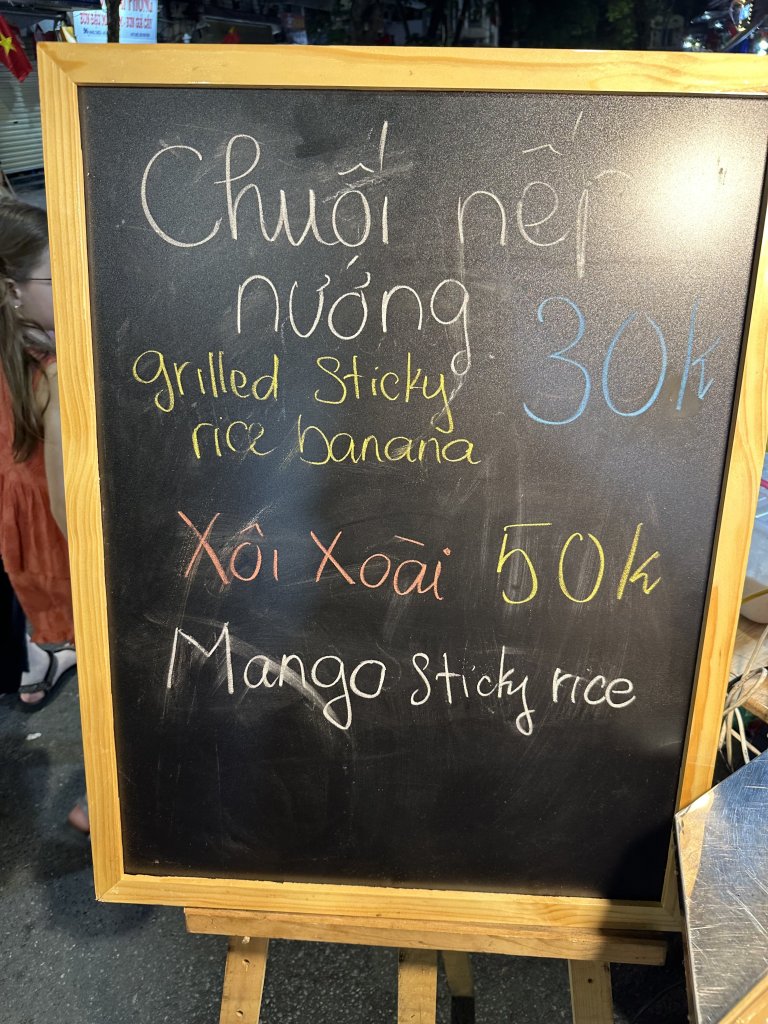 Chuối nếp
nướng 30k
grilled sticky
rice banana
Xôi Xoài 50k
Mango sticky rice